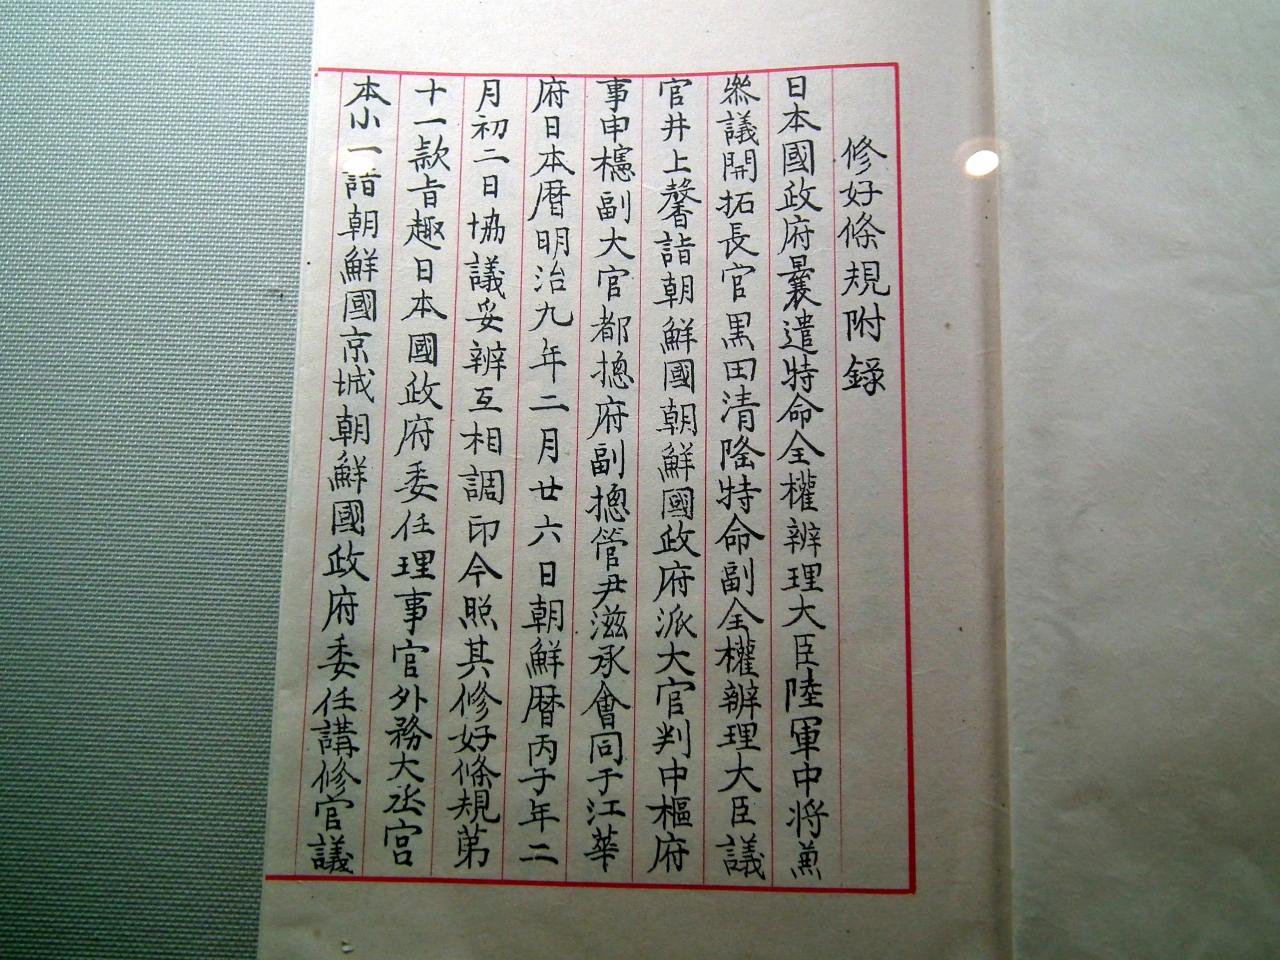 修好條規附錄
日本國政府曩遣特命全權辨理大臣陸軍中將兼
叅議開拓長官黒田清隆特命副全權辨理大臣議
官井上馨詣朝鮮國朝鮮國政府派大官判中樞府
事申櫶副大官都摠府副摠管尹滋承會同于江華
府日本暦明治九年二月廿六日朝鮮暦丙子年二
月初二日協議妥辨互相調印今照其修好條規第
十一款旨趣日本國政府委任理事官外務大丞宮
本小一詣朝鮮國京城朝鮮國政府委任講修官議